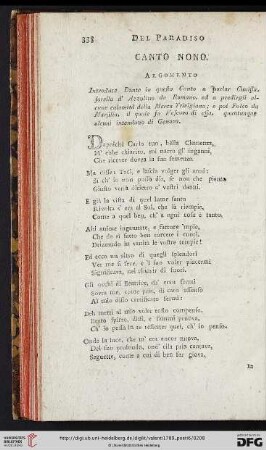 338 DEL PARADISO
CANTO NONO.
ARGOMENTO
Introduce Dante in questo Canto a parlar Cunizza,
sorella d' Azzolino da Romano, ed a predirgli al-
cune calamità della Marca Trivigiana; e poi Folco da
Marsilia, il quale fu Vescovo di essa, quantunque
alcuni intendano di Genova.
Dapoichè Carlo tuo, bella Clemenza,
M' ebbe chiarito, mi narrò gl' inganni,
Che ricever dovea la sua semenza.
Ma disse: Taci, e lascia volger gli anni:
Sì ch' io non posso dir, se non che pianto
Giusto verrà dirietro a' vostri danni.
E già la vista di quel lume santo
Rivolta s' era al Sol, che la riempie,
Come a quel ben, ch' a ogni cosa è tanto.
Ahi anime ingannate, e fatture empie,
Che da sì fatto ben torcete i cuori,
Drizzando in vanità le vostre tempie!
Ed ecco un altro di quegli splendori
Ver me si fece, e 'l suo voler piacermi
Significava, nel chiarir di fuori.
Gli occhi di Beatrice, ch' eran fermi
Sovra me, come pria, di caro assenso
Al mio disio certificato fermi:
Deh metti al mio voler tosto compenso,
Beato spirto, dissi, e fammi pruova,
Ch' io possa in te refletter quel, ch' io penso.
Onde la luce, che m' era ancor nuova,
Del suo profondo, ond' ella pria cantava,
Seguette, come a cui di ben far giova,
In
UNIVERSITÄTS-BIBLIOTHEK HEIDELBERG
http://digi.ub.uni-heidelberg.de/diglit/volant1783_poet6/0208
Gefördert durch die DFG